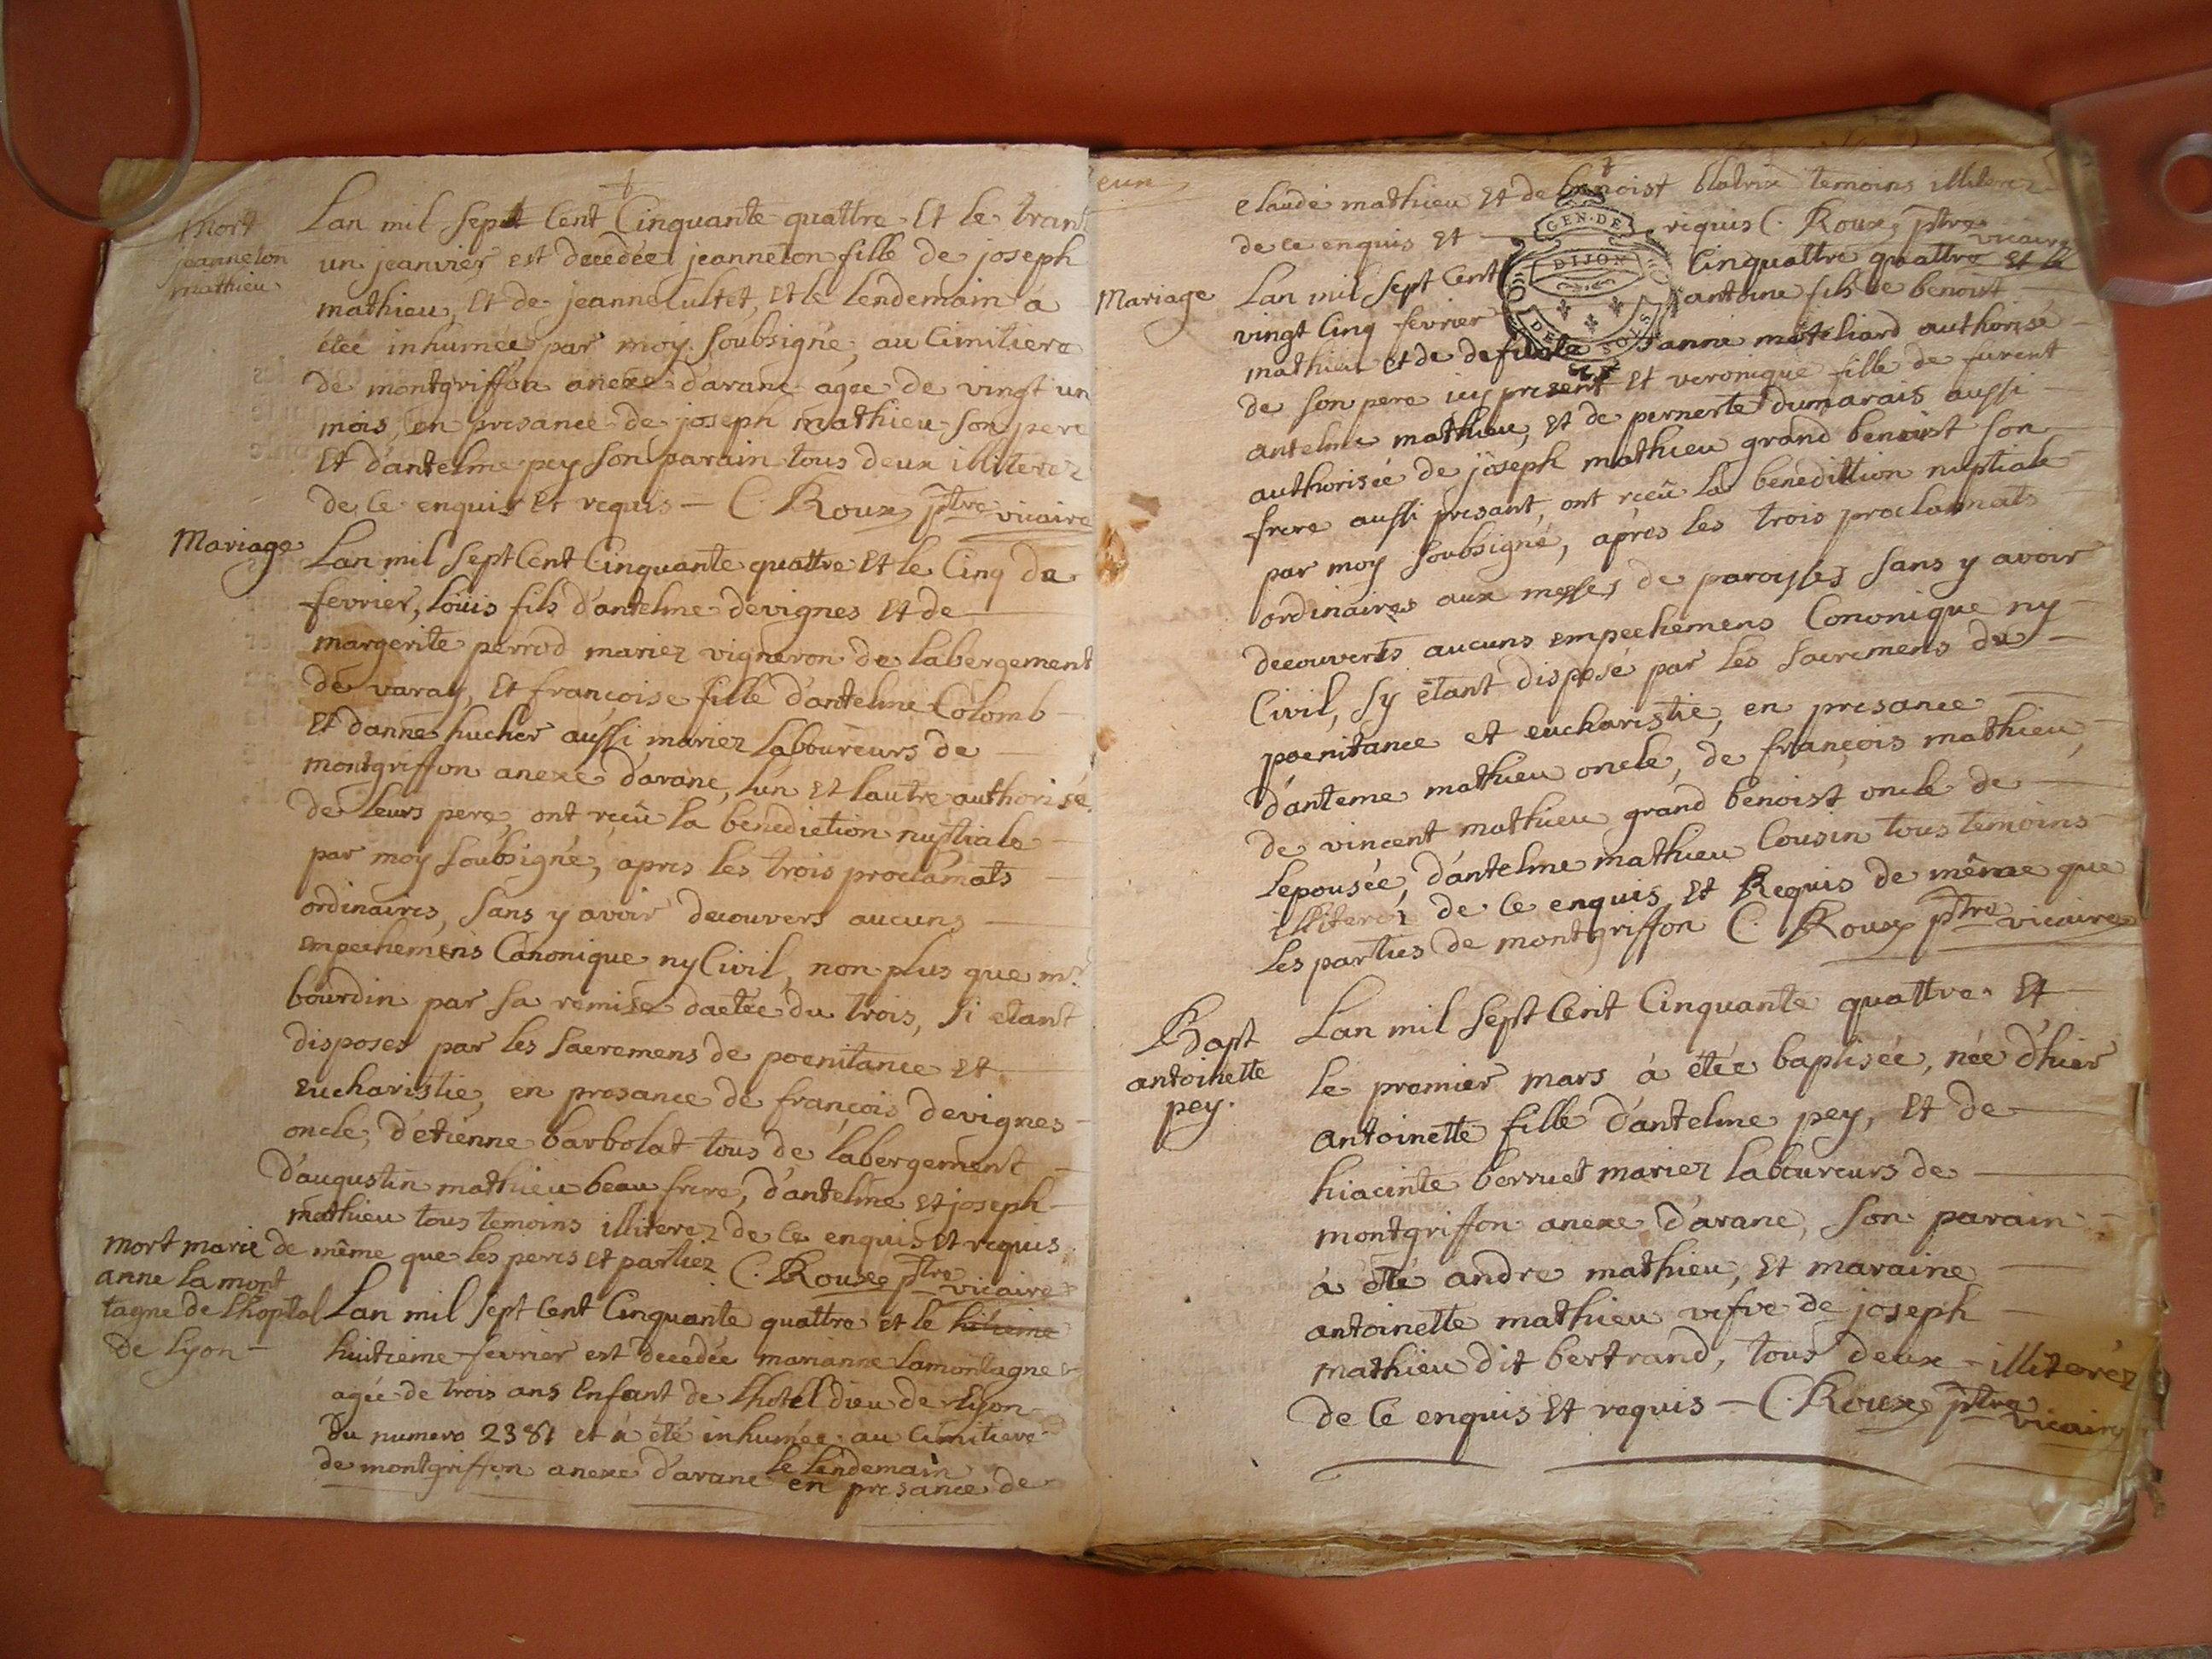 Mort
jeanneton
mathieu
Lan mil sept Cent Cinquante quattre Et le trant
un jeanvier est decedée jeanneton fille de joseph
mathieu, Et de jeanne Cultet, et le lendemain a
étée inhumée par moy soubsigné, au Cimitiere
de montgriffon anexe d'aranc agée de vingt un
mois, en presance de joseph mathieu son pere
Et d'antelme pey son parain tous deux illiterez
de ce enquis Et requis — C. Roux ptre vicaire
Mariage
Lan mil sept Cent Cinquante quattre Et le Cinq du
fevrier, loüis fils d'antelme devignes Et de
margerite perrod mariez vigneron de labergement
de varay, Et françoise fille d'antelme Colomb
Et d'anne hucher aussi mariez laboureurs de
montgriffon anexe d'aranc, lun Et lautre authorisé
de leurs pere, ont reçû la benediction nuptiale
par moy soubsigné, apres les trois proclamats
ordinaires, sans y avoir decouvers aucuns
empechemens Canonique ny Civil, non plus que mr
bourdin par sa remise dactée du trois, si etant
disposes par les sacremens de poenitance Et
Eucharistie, en presance de françois devignes
oncle, d'etienne barbolat tous de labergement
d'augustin mathieu beau frere, d'antelme Et joseph
mathieu tous temoins illiterez de ce enquis Et requis
de même que les peres Et partiez C. Roux ptre vicaire
mort marie
anne lamont
tagne de lhoptal
de Lyon
Lan mil sept Cent Cinquante quattre et le
huitieme fevrier est decedée marianne lamontagne
agée de trois ans Enfant de lhotel dieu de Lyon
du numero 2381 et à été inhumée au Cimitiere
de montgriffon anexe d'aranc le lendemain en presance de
Claude mathieu Et de benoist blatrix temoins illiterez
de ce enquis Et — requis C. Roux ptre vicaire
GEN. DE
DIJON
Mariage
Lan mil sept Cent Cinquattre quattre Et le
vingt Cinq fevrier antoine fils de benoist
mathieu Et de defunte anne moteliard authorisé
de son pere icy present Et veronique fille de furent
antelme mathieu, Et de pernerte dumarais aussi
authorisée de joseph mathieu grand benoist son
frere aussi presant, ont reçû la benedittion nuptiale
par moy soubsigné, apres les trois proclamats
ordinaires aux messes de paroisses sans y avoir
decouverts aucuns empechemens Cononique ny
Civil, sy étant disposé par les sacremens de
poenitance et eucharistie, en presance
d'anteme mathieu oncle, de françois mathieu,
de vincent mathieu grand benoist oncle de
lepousée, d'antelme mathieu Cousin tous temoins
illiterez de ce enquis Et Requis de même que
les parties de montgriffon C. Roux ptre vicaire
Bapt
antoinette
pey.
Lan mil sept Cent Cinquante quattre Et
le premier mars à étée baptisée, née d'hier
antoinette fille d'antelme pey, Et de
hiacinte berruet mariez laboureurs de
montgriffon anexe d'aranc, son parain
à été andre mathieu, Et maraine
antoinette mathieu vefve de joseph
mathieu dit bertrand, tous deux illiteréz
de ce enquis Et requis — C. Roux ptre vicaire